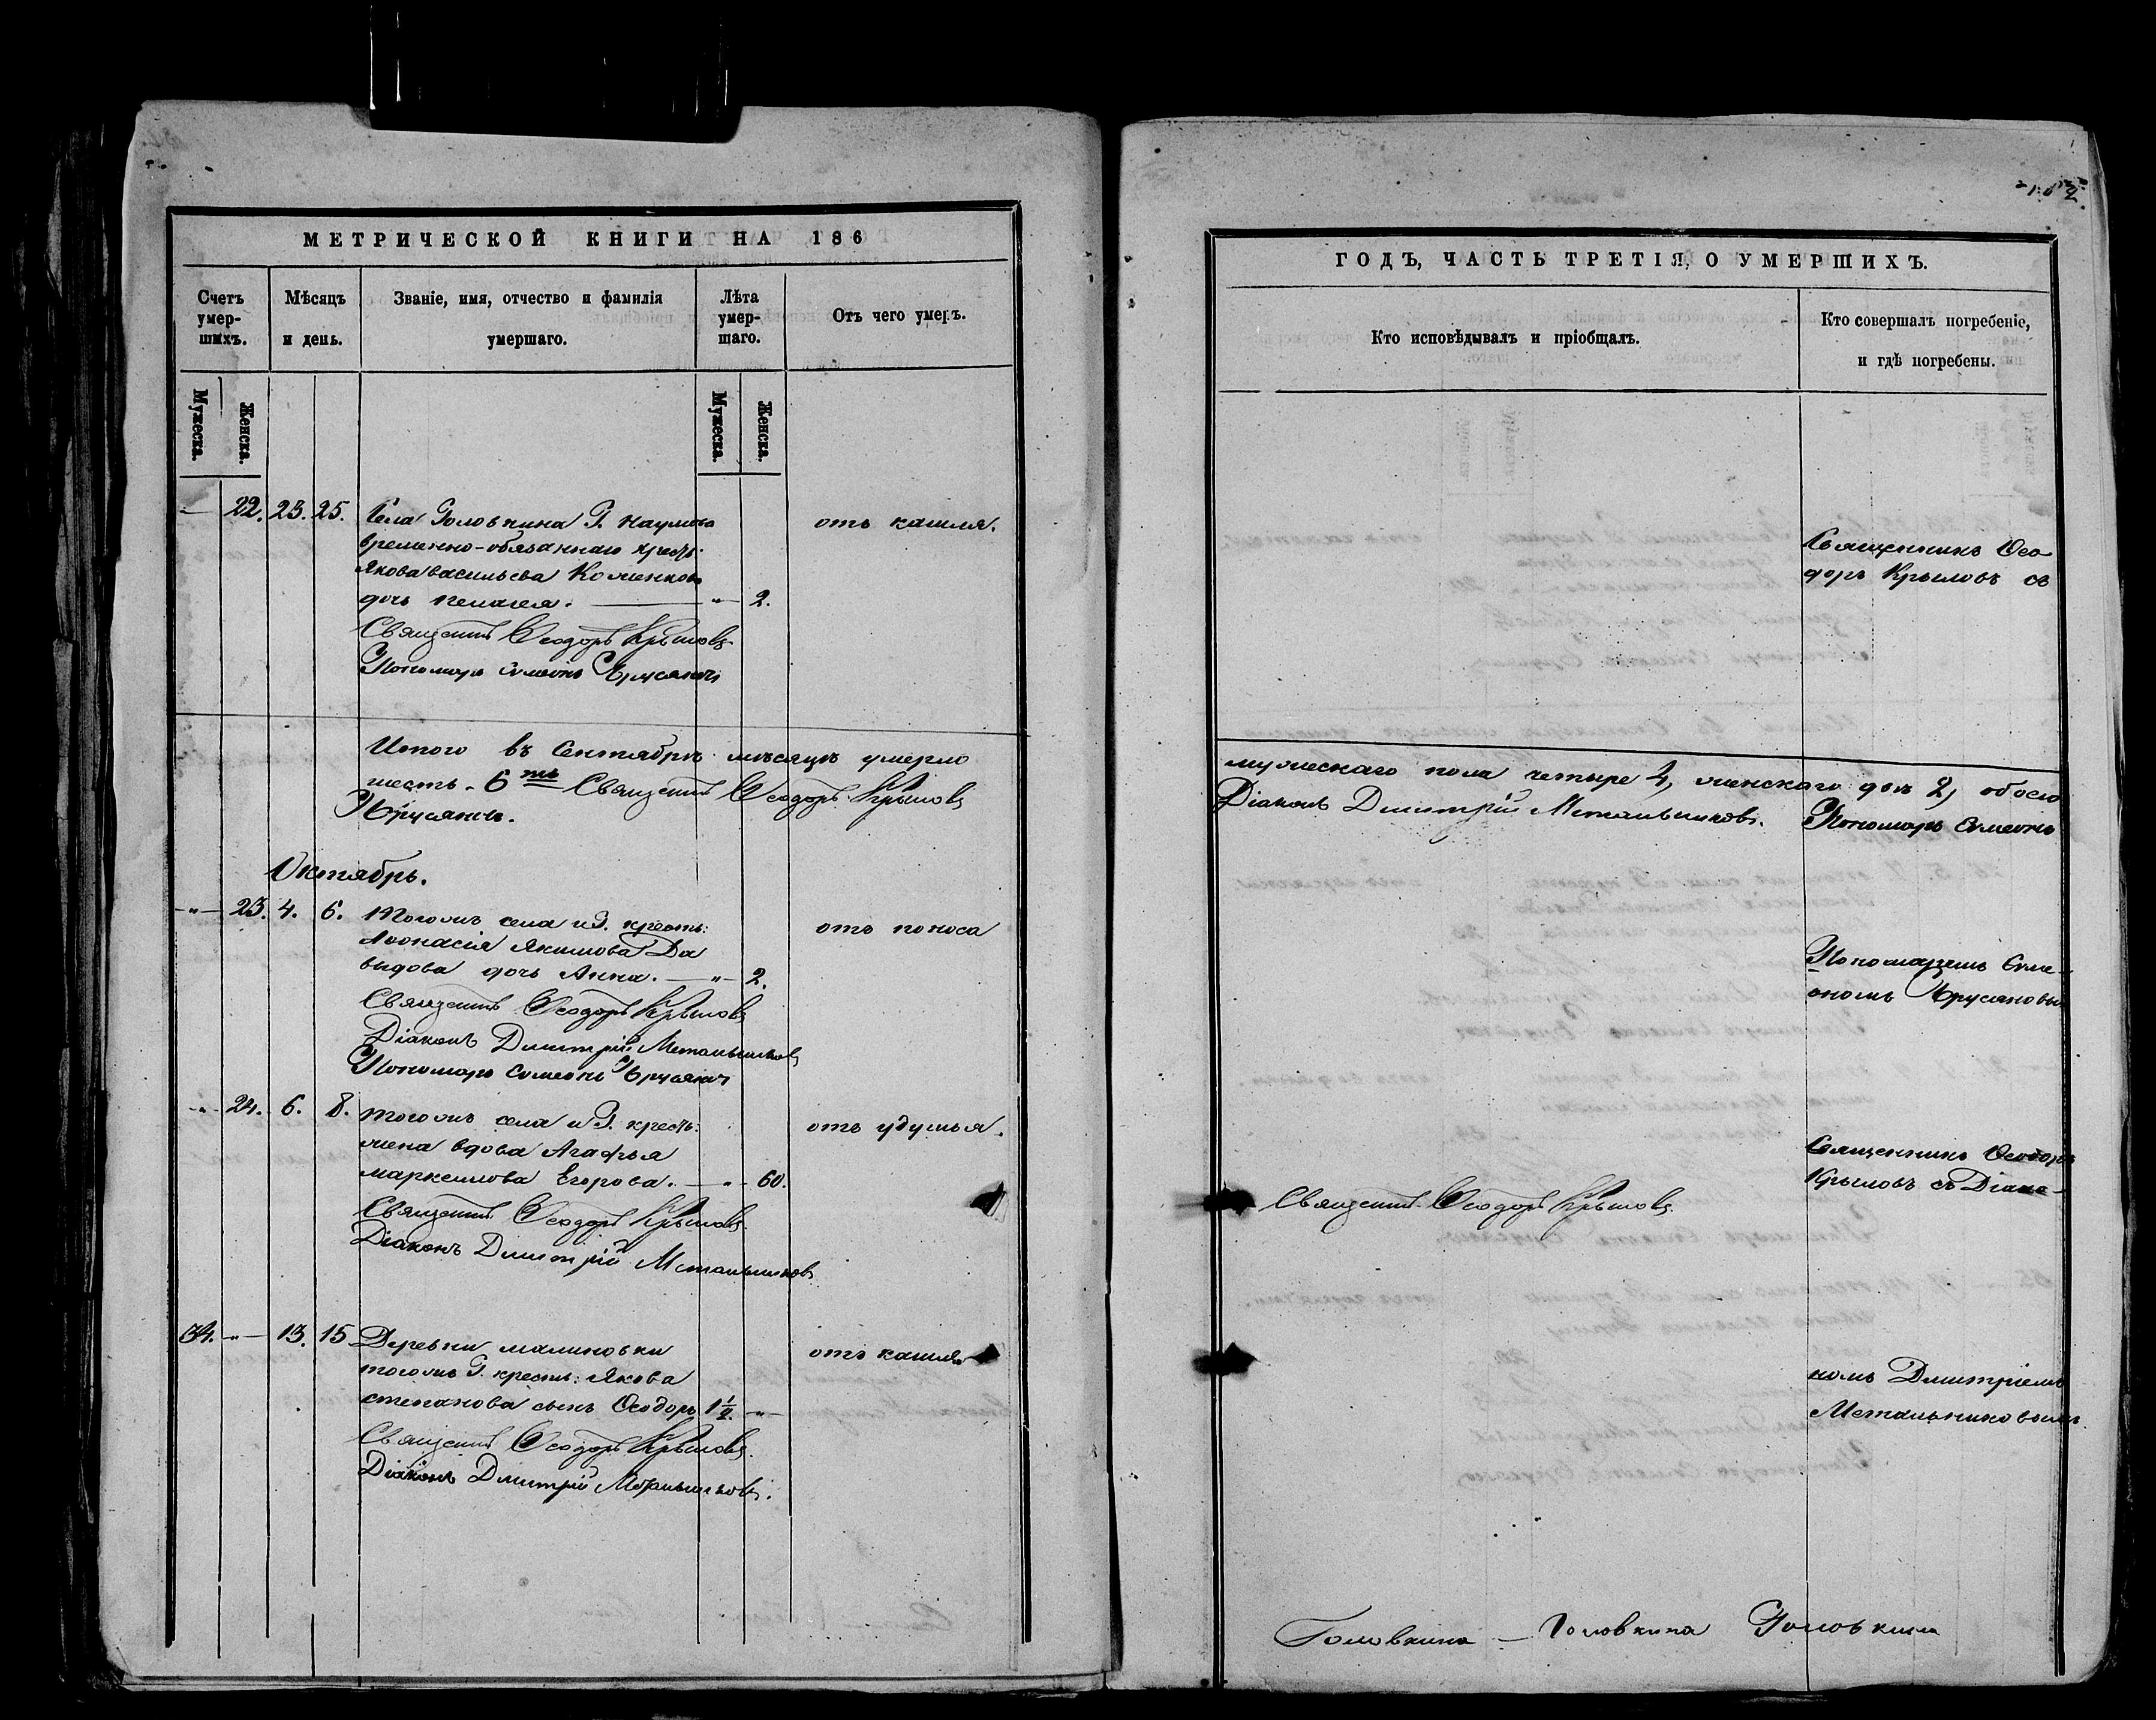 МЕТРИЧЕСКОЙ КНИГИ НА 186
Счетъ умер-шихъ.
Мѣсяцъ и день.
Званіе, имя, отчество и фамилія умершаго.
Лѣта умер-шаго.
Отъ чего умеръ.
Мужеска.
Женска.
Мужеска.
Женска.
22. 23. 25. Села Головкина Г. Наумова отъ кашля.
временно-обязаннаго крест:
Якова Васильева
дочь Пелагея. — „ — 2.
Священникъ Ѳеодоръ Крыловъ
Пономарь Симеонъ
Итого въ Сентябрѣ мѣсяцѣ умерло
шесть. 6ть Священникъ Ѳеодоръ Крыловъ
Октябрь.
— „ — 23. 4. 6. Тогожъ села и Г. крестъ: отъ поноса
Аѳонасія Якимова Да
выдова дочь Анна. — „ — 2.
Священникъ Ѳеодоръ Крыловъ
Діаконъ Димитрій Метальниковъ
Пономарь Симеонъ
„ 24. 6. 8. Тогожъ села и Г. крестъ: отъ удушья.
жена вдова Агафья
Маркеллова Егорова. — „ — 60.
Священникъ Ѳеодоръ Крыловъ
Діаконъ Димитрій Метальниковъ
34. „ — 13. 15 Деревни Малиновки отъ кашля
тогожъ Г. крестъ: Якова
Степанова сынъ Ѳеодоръ 1½. — „ —
Священникъ Ѳеодоръ Крыловъ.
Діаконъ Димитрій Метальниковъ.
ГОДЪ, ЧАСТЬ ТРЕТІЯ, О УМЕРШИХЪ.
Кто исповѣдывалъ и пріобщалъ.
Кто совершалъ погребеніе,
и гдѣ погребены.
Священникъ Ѳео
доръ Крыловъ съ
мужескаго пола четыре 4, женскаго двѣ 2, обоего
Діаконъ Димитрій Метальниковъ. Пономарь Симеонъ
Пономаремъ Симе-
ономъ
Священникъ Ѳеодоръ
Крыловъ съ Діако-
Священникъ Ѳеодоръ Крыловъ.
номъ Димитріемъ
Метальниковымъ.
Головкина — Головкина Головкина